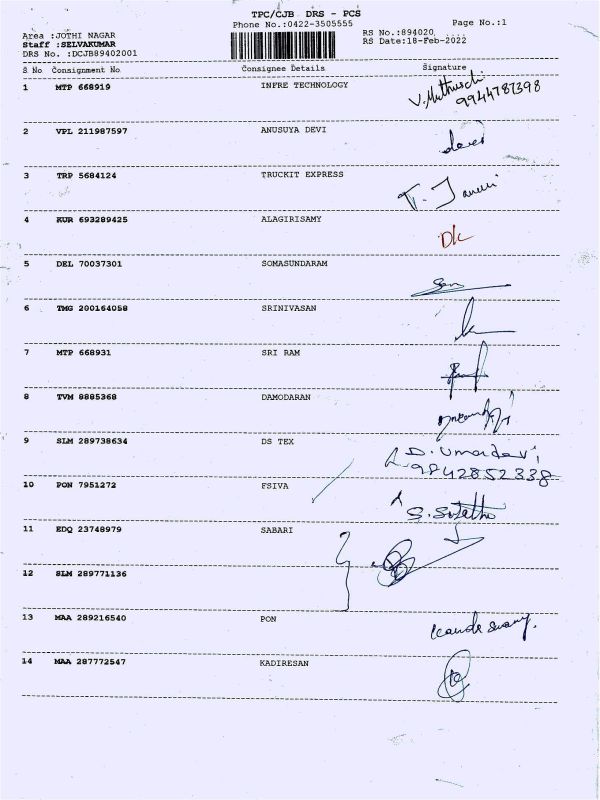 TPC/CJB DRS - PCS
Phone No.:0422-3505555
Page No.:1
Area :JOTHI NAGAR
RS No.:894020
Staff :SELVAKUMAR
RS Date:18-Feb-2022
DRS No. :DCJB89402001
S No Consignment No Consignee Details Signature
1 MTP 668919 INFRE TECHNOLOGY
9944787398
2 VPL 211987597 ANUSUYA DEVI
3 TRP 5684124 TRUCKIT EXPRESS
4 KUR 693289425 ALAGIRISAMY
5 DEL 70037301 SOMASUNDARAM
6 TMG 200164058 SRINIVASAN
7 MTP 668931 SRI RAM
8 TVM 8885368 DAMODARAN
9 SLM 289738634 DS TEX D. Umadevi
9842852338
10 PON 7951272 FSIVA
11 EDQ 23748979 SABARI
12 SLM 289771136
13 MAA 289216540 PON
14 MAA 287772547 KADIRESAN